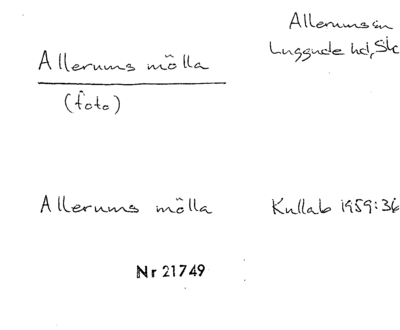 Allerums sn
Luggude hd, Sk
Allerums mölla
(foto)
Allerums mölla
Kullab 1959:36
Nr 21749